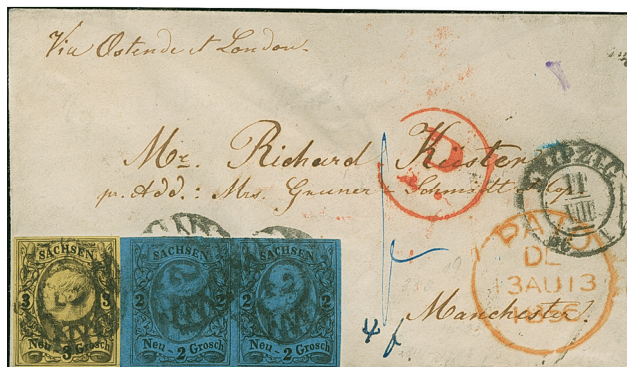 Via Ostende et London.
Mr. Richard Küster
pr. Add.: Mrs. Gruner & Schmidt Hop
Manchester.
LEIPZIG
11
VIII
PAID
DE
13AU13
SACHSEN
3
Neu - 3 Grosch
SACHSEN
2 2
Neu - 2 Grosch
SACHSEN
2 2
Neu - 2 Grosch